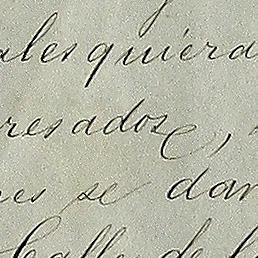 alesquiera
resadose,
nes se dan
Calle de l